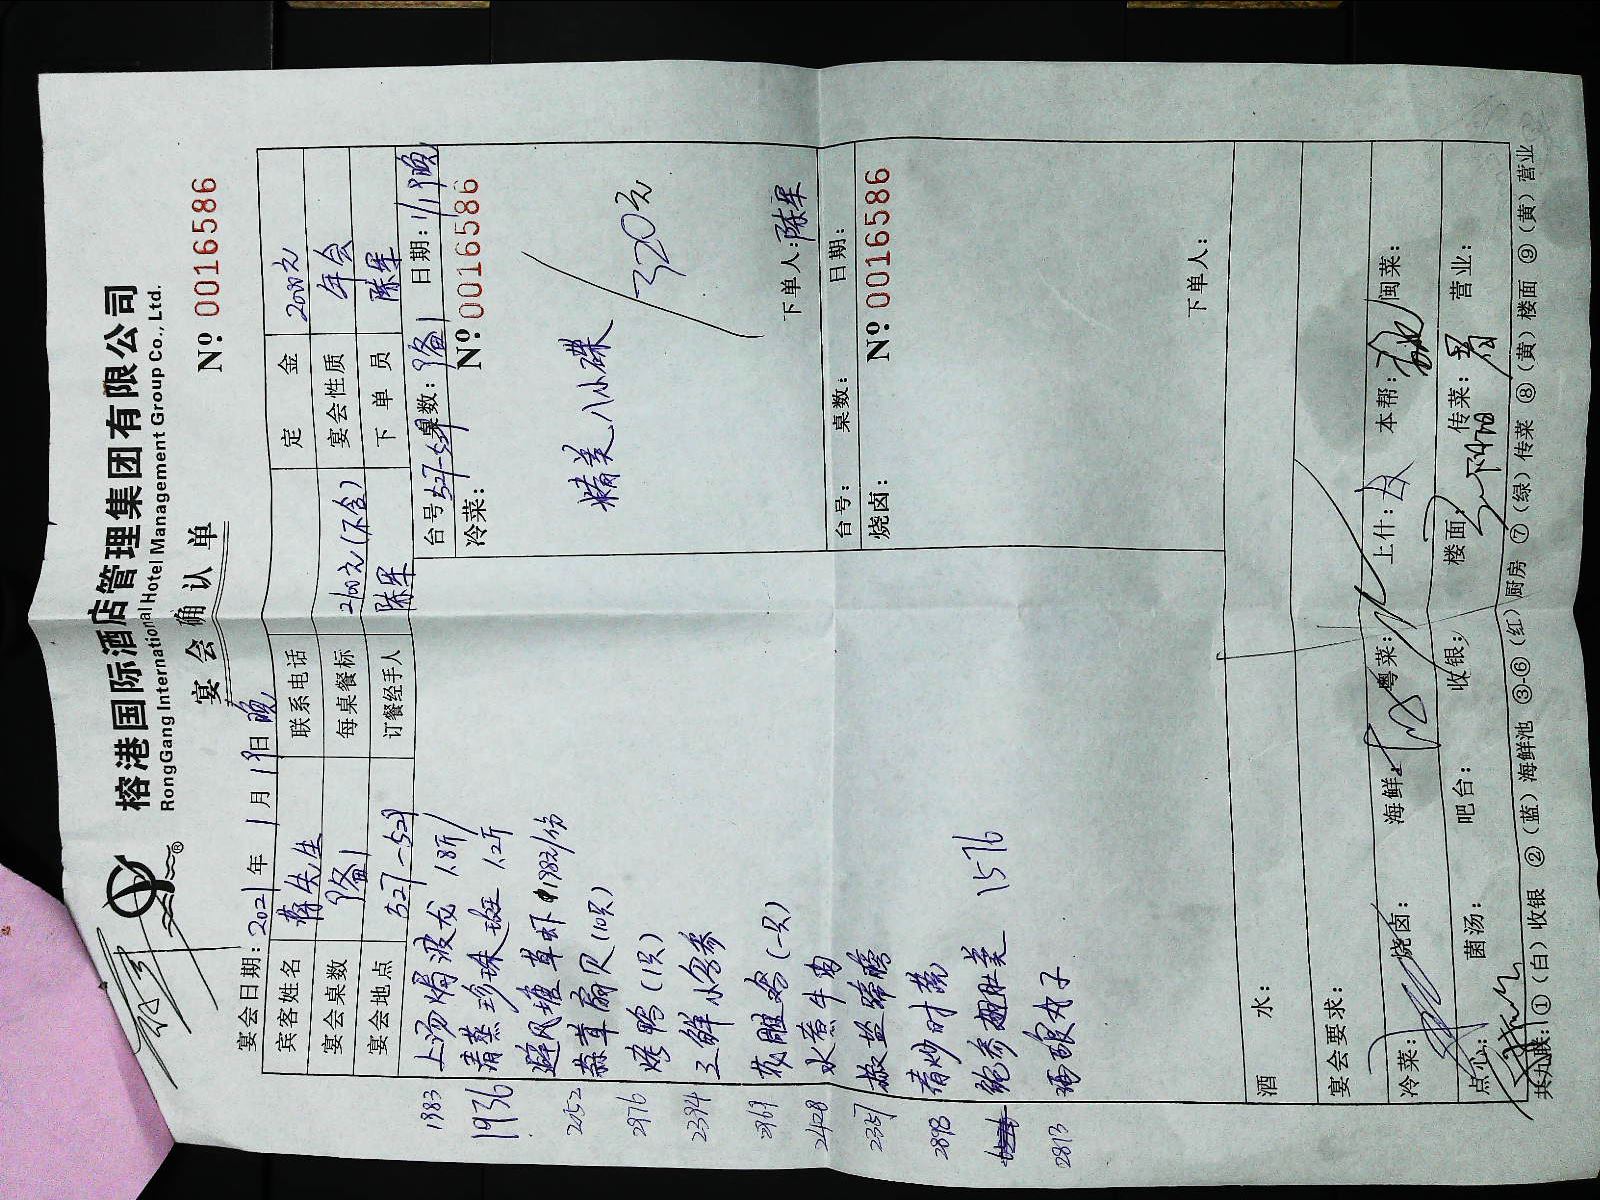 榕港国际酒店管理集团有限公司
RongGang International Hotel Management Group Co., Ltd.
宴会确认单
Nº 0016586
宴会日期：2021年1月19日晚
宾客姓名 蒋先生 联系电话 定金 2000元
宴会桌数 9备1 每桌餐标 2100元(不含) 宴会性质 年会
宴会地点 527-529 订餐经手人 陈军 下单员 陈军
台号 527-529 桌数：9备1 日期：1/19晚
冷菜： Nº 0016586
精美八小碟
320元
下单人：陈军
台号： 桌数： 日期：
烧卤： Nº 0016586
下单人：
1983 上汤焗波龙 1.8斤
1936 清蒸珍珠斑 1.2斤
避风塘草虾 198元/份
2252 蒜茸扇贝(10只)
2976 烤鸭(1只)
2394 三鲜小乌参
(一只)
2428 水煮牛肉
2357 椒盐蹄髈
2898 清炒时蔬
1576
2813
酒水：
宴会要求：
冷菜： 烧卤： 海鲜： 粤菜： 上什： 本帮： 闽菜：
点心： 菌汤： 吧台： 收银： 楼面： 传菜： 营业：
共九联：①（白）收银 ②（蓝）海鲜池 ③-⑥（红）厨房 ⑦（绿）传菜 ⑧（黄）楼面 ⑨（黄）营业